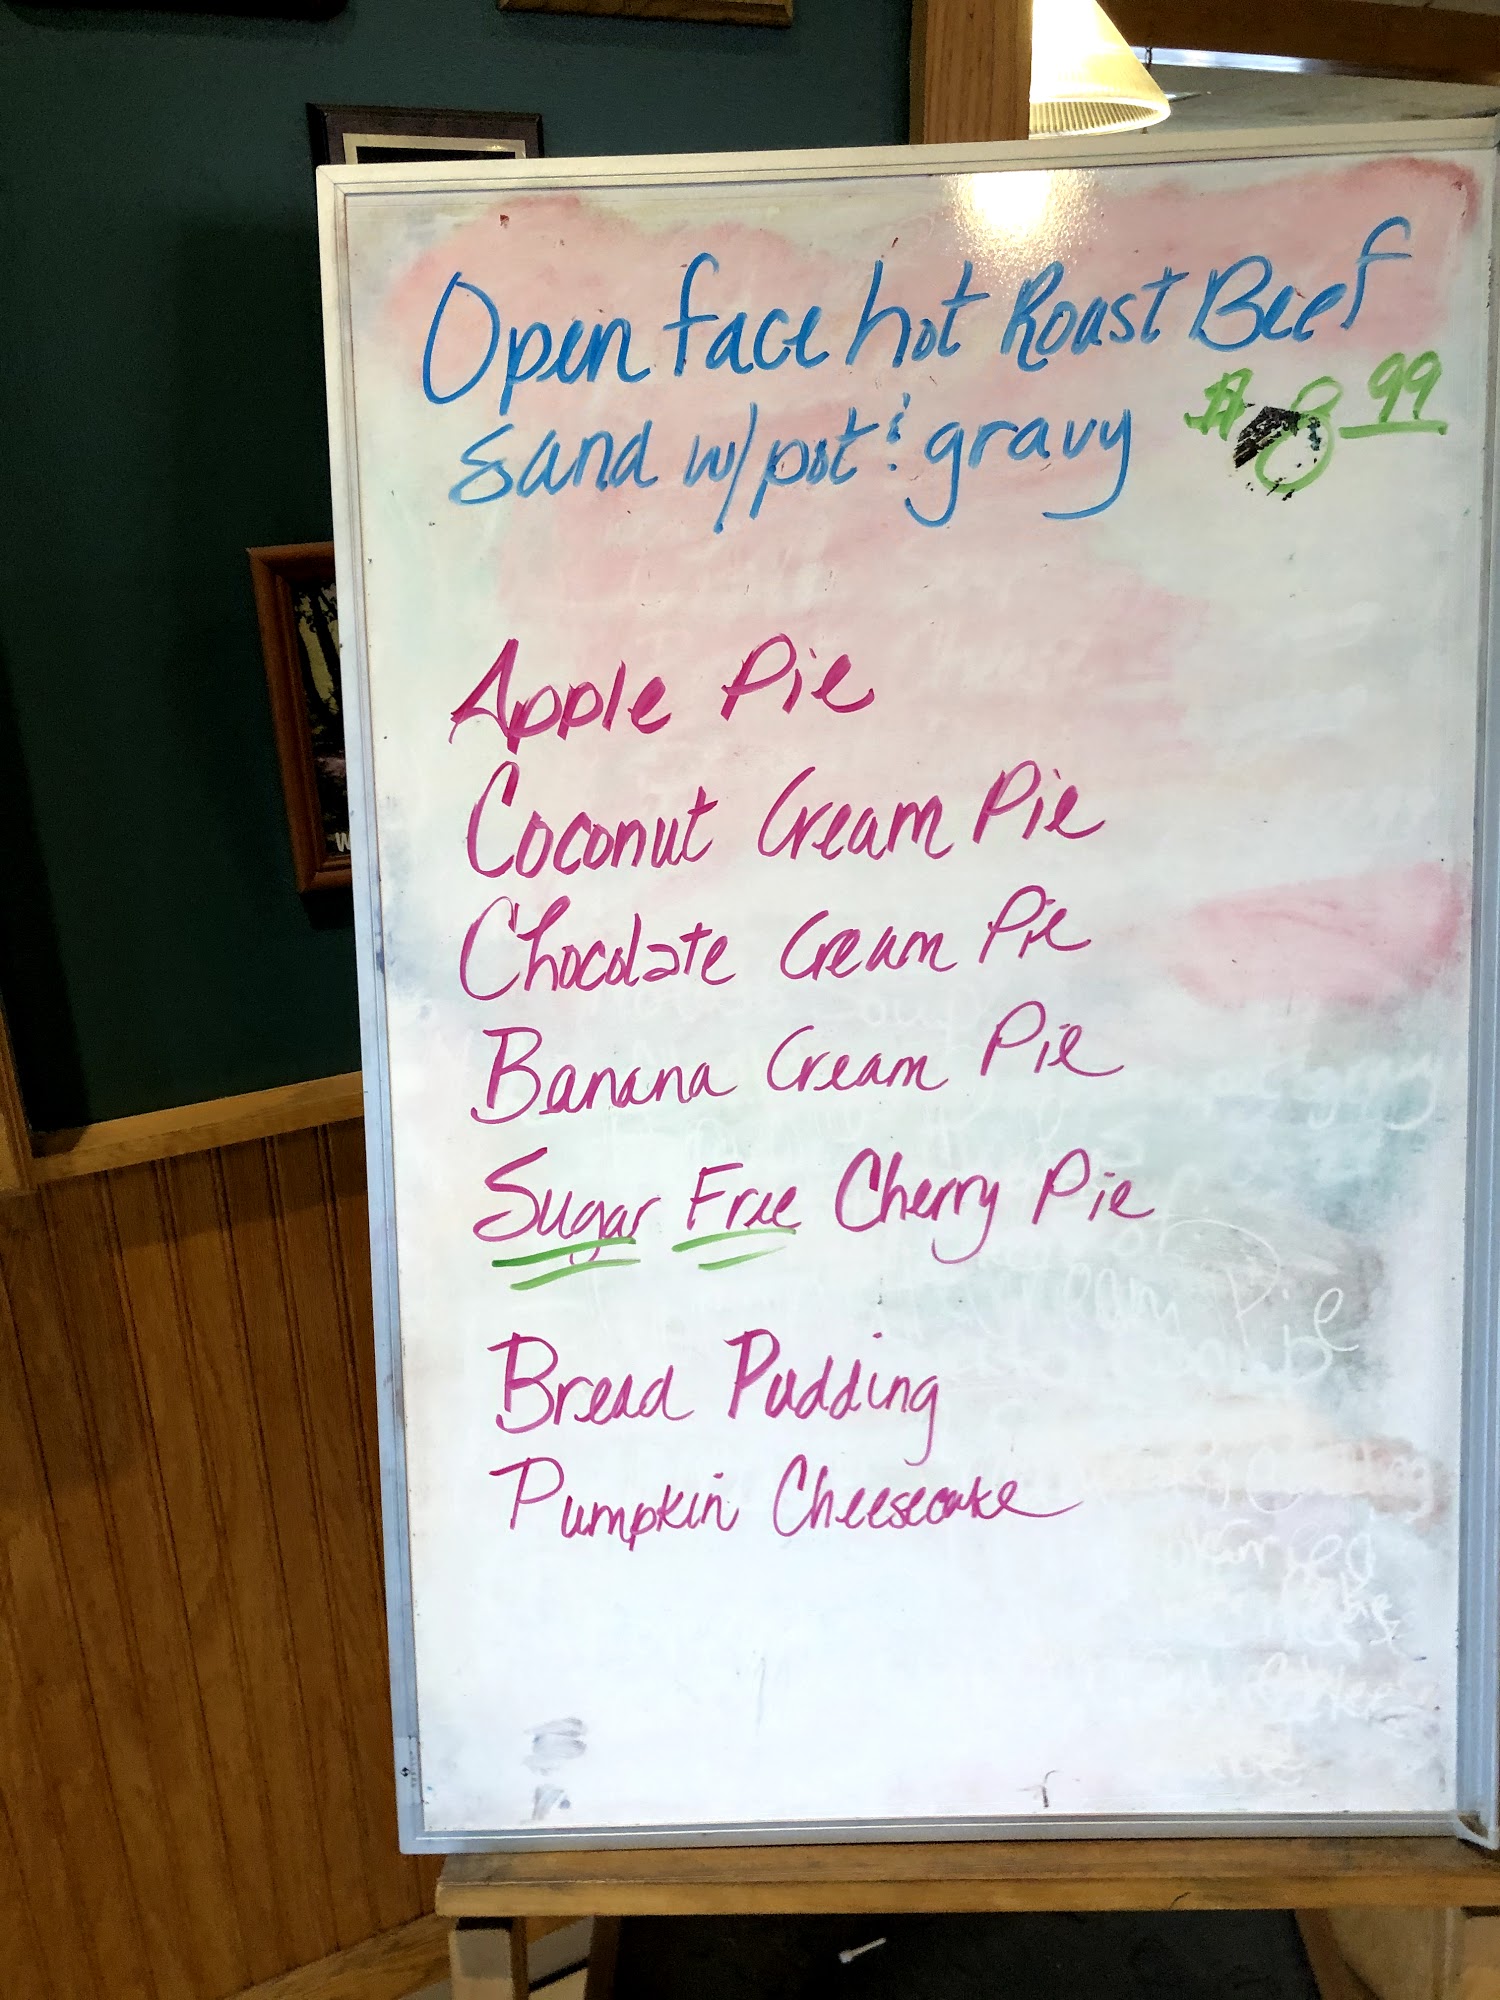 Open face hot Roast Beef
sand w/pot & gravy $8.99
Apple Pie
Coconut Cream Pie
Chocolate Cream Pie
Banana Cream Pie
Sugar Free Cherry Pie
Bread Pudding
Pumpkin Cheesecake